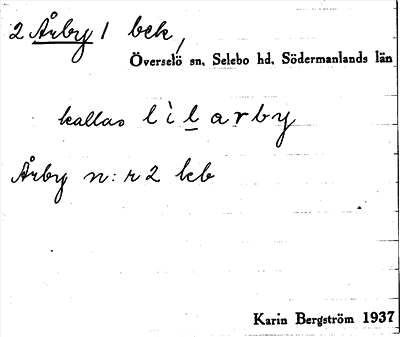 2 Årby 1 bek,
Överselö sn, Selebo hd, Södermanlands län
kallas lìlarby
Årby n:r 2 kb
Karin Bergström 1937